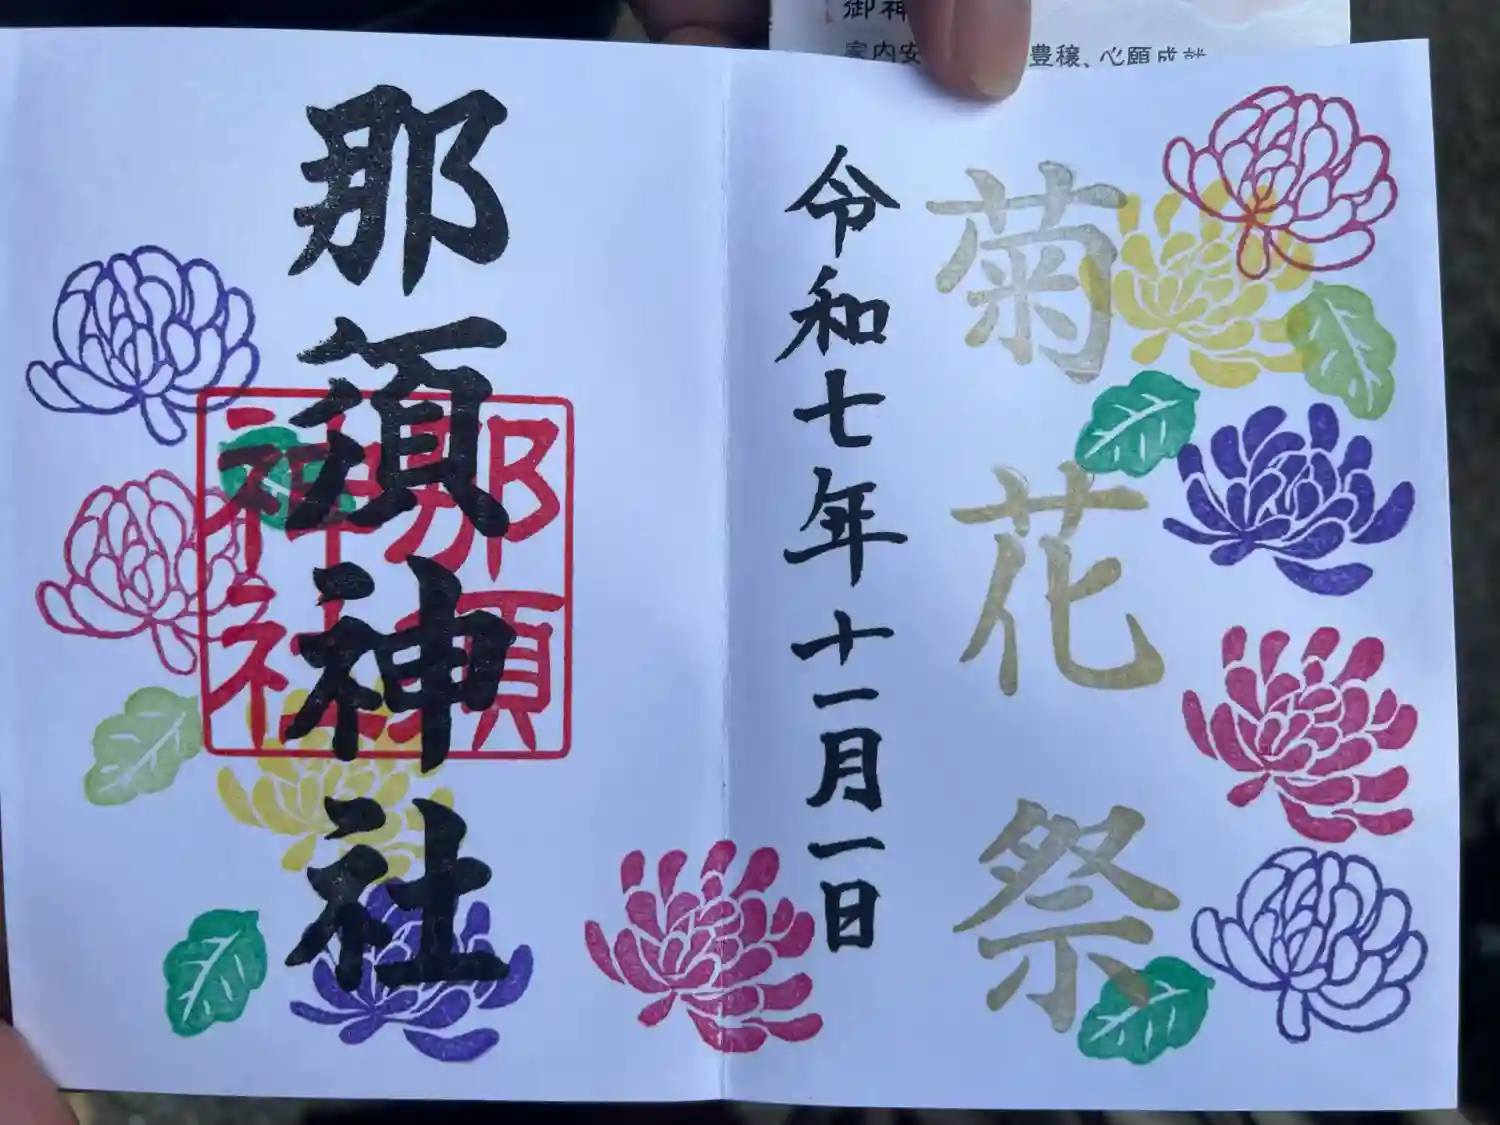 御神
家内安
豊穣、心願成就
菊花祭
令和七年十一月一日
那須神社
那須
神社